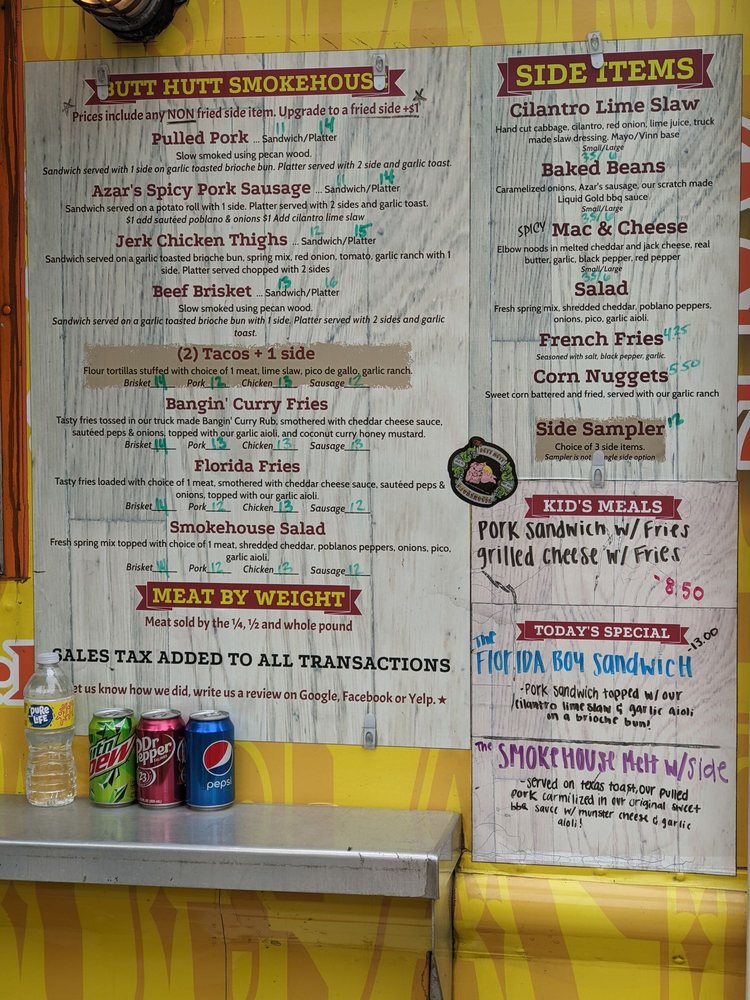 BUTT HUTT SMOKEHOUSE
Prices include any NON fried side item. Upgrade to a fried side +$1
11 14
Pulled Pork ... Sandwich/Platter
Slow smoked using pecan wood.
Sandwich served with 1 side on garlic toasted brioche bun. Platter served with 2 side and garlic toast.
11 14
Azar's Spicy Pork Sausage ... Sandwich/Platter
Sandwich served on a potato roll with 1 side. Platter served with 2 sides and garlic toast.
$1 add sautéed poblano & onions $1 Add cilantro lime slaw
12 15
Jerk Chicken Thighs ... Sandwich/Platter
Sandwich served on a garlic toasted brioche bun, spring mix, red onion, tomato, garlic ranch with 1
side. Platter served chopped with 2 sides
13 16
Beef Brisket ... Sandwich/Platter
Slow smoked using pecan wood.
Sandwich served on a garlic toasted brioche bun with 1 side. Platter served with 2 sides and garlic
toast.
(2) Tacos + 1 side
Flour tortillas stuffed with choice of 1 meat, lime slaw, pico de gallo, garlic ranch.
Brisket 14 Pork 12 Chicken 13 Sausage 12
Bangin' Curry Fries
Tasty fries tossed in our truck made Bangin' Curry Rub, smothered with cheddar cheese sauce,
sautéed peps & onions, topped with our garlic aioli, and coconut curry honey mustard.
Brisket 14 Pork 13 Chicken 13 Sausage 13
Florida Fries
Tasty fries loaded with choice of 1 meat, smothered with cheddar cheese sauce, sautéed peps &
onions, topped with our garlic aioli.
Brisket 14 Pork 12 Chicken 13 Sausage 12
Smokehouse Salad
Fresh spring mix topped with choice of 1 meat, shredded cheddar, poblanos peppers, onions, pico,
garlic aioli.
Brisket 14 Pork 12 Chicken 13 Sausage 12
MEAT BY WEIGHT
Meat sold by the ¼, ½ and whole pound
SALES TAX ADDED TO ALL TRANSACTIONS
et us know how we did, write us a review on Google, Facebook or Yelp. ★
SIDE ITEMS
Cilantro Lime Slaw
Hand cut cabbage, cilantro, red onion, lime juice, truck
made slaw dressing. Mayo/Vinn base
Small/Large
35/ 6
Baked Beans
Caramelized onions, Azar's sausage, our scratch made
Liquid Gold bbq sauce
Small/Large
35/6
SPICY Mac & Cheese
Elbow noods in melted cheddar and jack cheese, real
butter, garlic, black pepper, red pepper
Small/Large
35/6
Salad
Fresh spring mix, shredded cheddar, poblano peppers,
onions, pico, garlic aioli.
French Fries 4.25
Seasoned with salt, black pepper, garlic.
Corn Nuggets 5.50
Sweet corn battered and fried, served with our garlic ranch
Side Sampler 12
Choice of 3 side items.
Sampler is not ngle side option
BUTT HUTT
SMOKEHOUSE
KID'S MEALS
Pork Sandwich w/ Fries
grilled cheese w/ Fries
-8.50
TODAY'S SPECIAL
-13.00
The
FLORIDA BOY SandWICH
-Pork sandwich topped w/ our
cilantro lime slaw & garlic aioli
on a brioche bun!
The SMOKEHOUSE Melt w/side
-served on texas toast, our pulled
pork carmilized in our original sweet
bbq sauce w/ munster cheese & garlic
aioli!
PURE
LIFE
mtn
Dew
Dr Pepper
23
pepsi